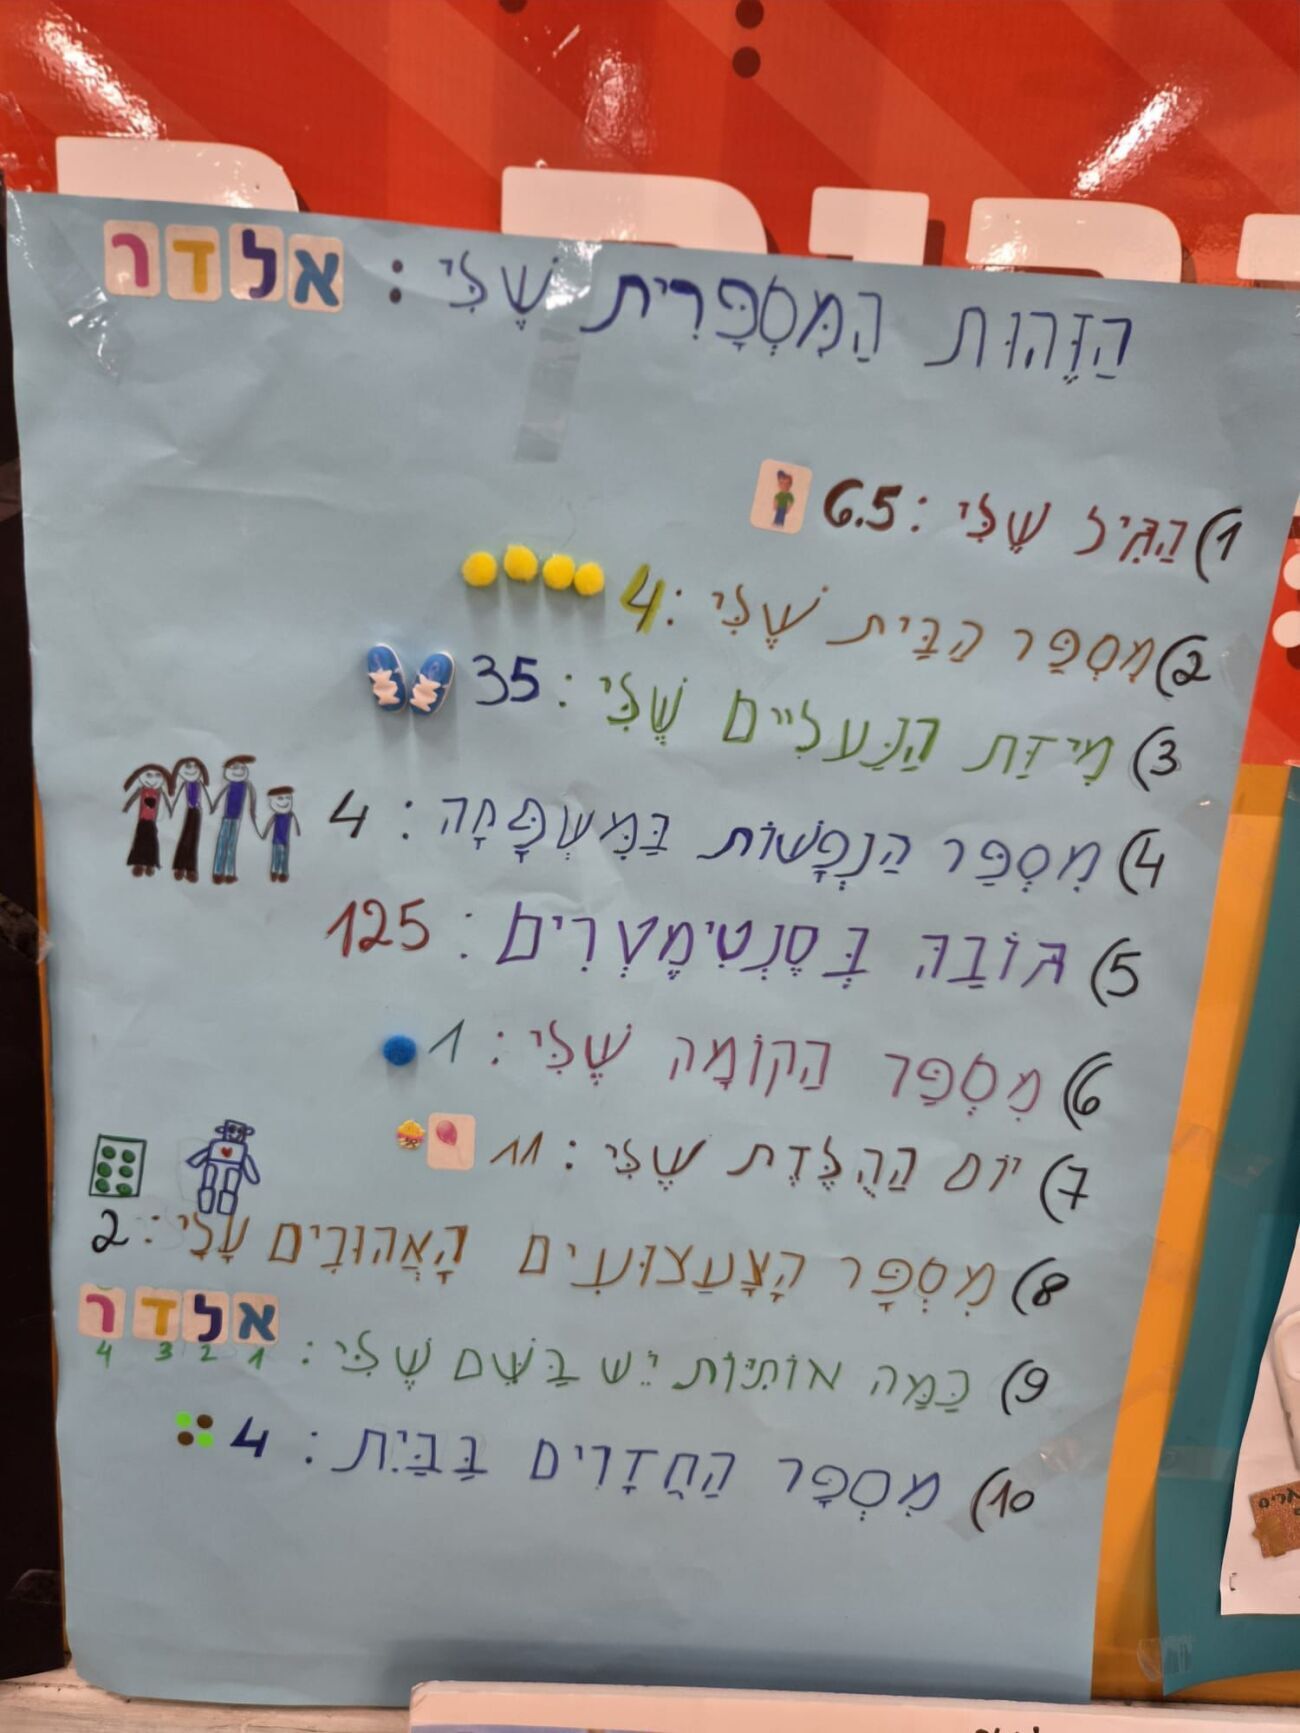 הַזֶּהוּת הַמִּסְפָּרִית שֶׁלִּי : אלדר
1) הַגִּיל שֶׁלִּי : 6.5
2) מִסְפַּר הַבַּיִת שֶׁלִּי : 4
3) מִידַּת הַנַּעֲלַיִים שֶׁלִּי : 35
4) מִסְפַּר הַנְפָשׁוֹת בַּמִּשְׁפָּחָה : 4
5) גּוֹבַהּ בְּסֶנְטִימֶטְרִים : 125
6) מִסְפָּר הַקוֹמָה שֶׁלִּי : 1
7) יוֹם הַהֻלֶּדֶת שֶׁלִּי : 11
8) מִסְפָּר הַצָּעַצוּעִים הָאֲהוּבִים עָלַי : 2
9) כַּמָּה אוֹתִיּוֹת יֵשׁ בַּשֵּׁם שֶׁלִּי : אלדר
1 2 3 4
10) מִסְפָּר הַחֲדָרִים בַּבַּיִת : 4